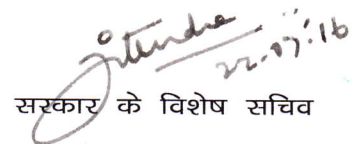 Jitendra
22.07.16
सरकार के विशेष सचिव